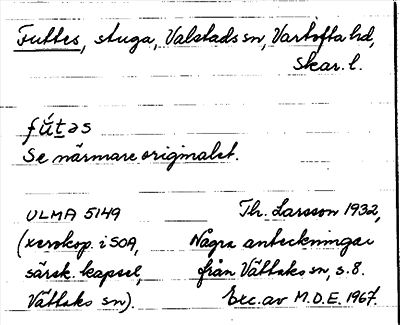 Futtes, stuga, Valstads sn, Vartofta hd,
Skar. l.
fú̄təs
Se närmare originalet.
ULMA 5149 Th. Larsson 1932,
(xerokop. i SOA, Några anteckningar
särsk. kapsel, från Vättaks sn, s. 8.
Vättaks sn). Exc. av M.D.E. 1967.